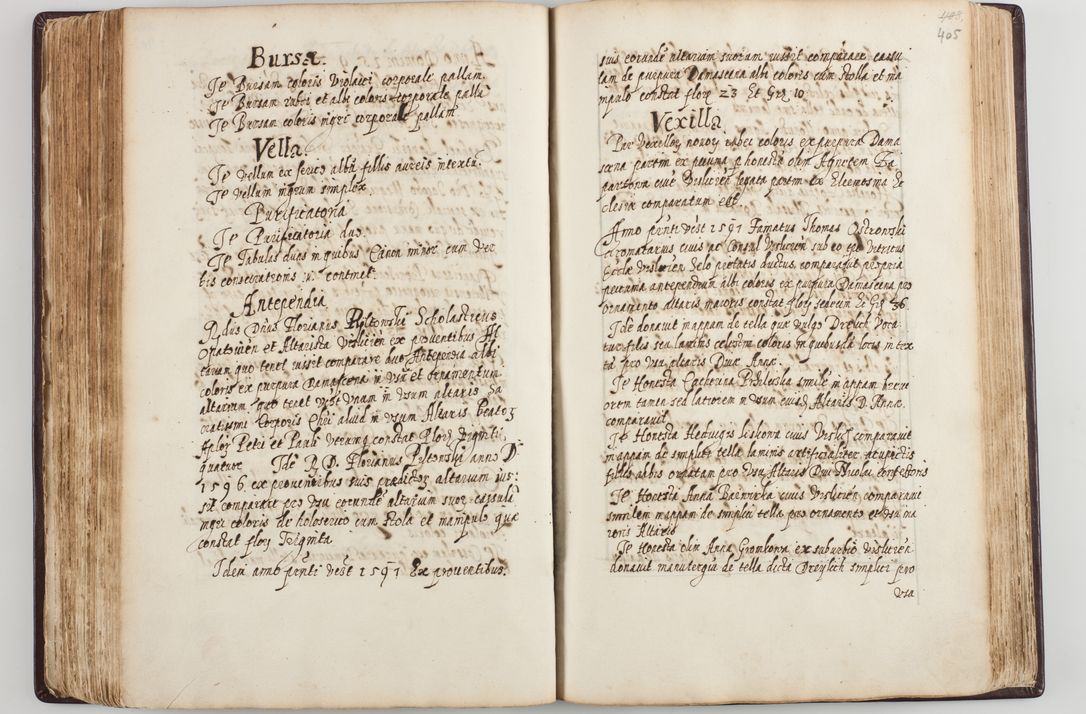 Bursæ.
Ite Bursam coloris violacei corporale pallam.
Ite Bursam rubei et albi coloris corporale palla
Ite Bursam coloris nigri corporale pallam
Vella
Ite vellum ex serico albū fillis aureis intextū.
Ite vellum nigrum simplex
Purificatoria
Ite Purificatoria duo
Ite Tabulas duas in quibus Canon minor cum ver
bis consecrationis continet.
Antependia
Rdus Dnus Florianus Scholasticus
et Altarista ex proventibus Al
tarium quo tenet iussit comparare duo Antepedia albi
coloris ex purpura Damascena in usū et ornamentum
altarium quo tenet unam in usum altaris Sa
cratissimi Corporis Chri aliud in usum Altaris Beator
Aplor Petri et Pauli utrumq constat Flor Viginti
quatuor Ide R D. Florianus anno D.
1596. ex proventibus suis prædictor altarium ius:
sit comparare pro usu eorunde altarium suor casulā
nigri coloris de holoserico cum stola et manipulo quæ
constat flor Triginta
Idem anno pnti 1591 Ex proventibus.
408,
405
suis eorundē altarium suorum iussit comparare casu
lam de purpura Damascena albi coloris cum stolla et ma
nipulo constat flor 23 Et Grs 10
Vexilla
novor rubei coloris ex purpura Dama
scena partim ex pecunia p honesta olim Agnetem
legata partim ex Eleemosina Ec
clesiæ comparatum est.
Anno pnti 1591 Famatus Thomas Ostronski
Aromatarius civis ac Consul
Ecclæ zelo pietatis ductus, comparavit propria
pecunia antependium albi coloris ex purpura Damascena pro
ornamento altaris maioris constat flor et Grs 36.
Ide donavit mappam de tella quæ vulgo Drelich voca
tur filis seu laminis celestini coloris in quibusdā locis intex
ta pro usu altaris Divæ Annæ.
Ite Honesta Catherina simile mappam breve
orem tamen sed latiorem in usum eiusdē Altaris D. Annæ.
comparavit
Ite Honesta Hedvigis civis comparavit
mappam de simplici tella laminis artificialiter
fillis albis ornatam pro usu Altaris Divi Nicolai confessoris
Ite Honesta Anna civis comparavit
similem mappam de simplici tella pro ornamento et usu ma
ioris Altaris
Ite Honesta olim Anna Gromkowa ex suburbio
donavit manutergiū de tella dicta simplici pro
usu